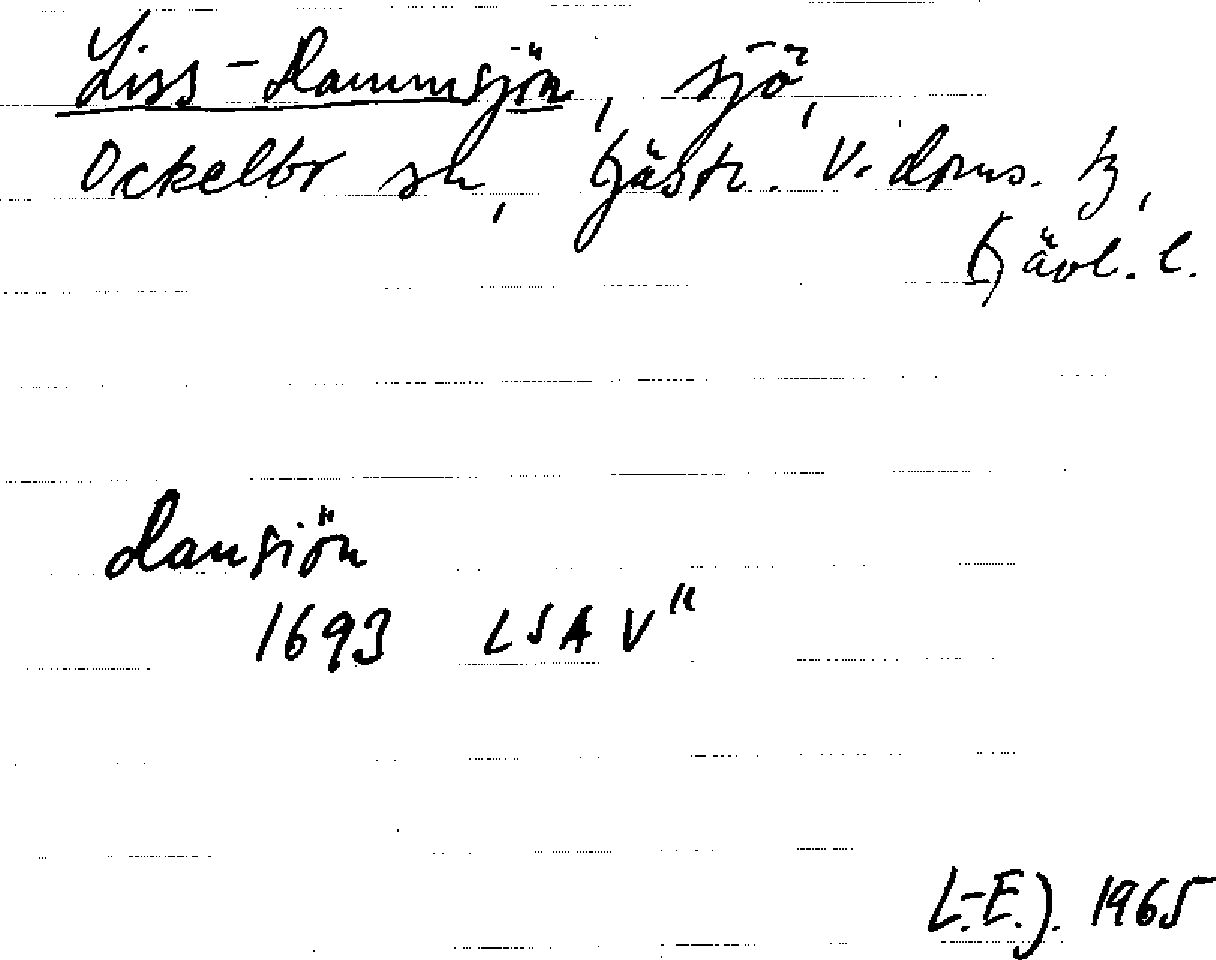 Liss-Dammsjön, sjö,
Ockelbo sn, Gästr. V. doms. tg,
Gävl. l.
Dansiön
1693 LSA V11
L-E.J. 1965